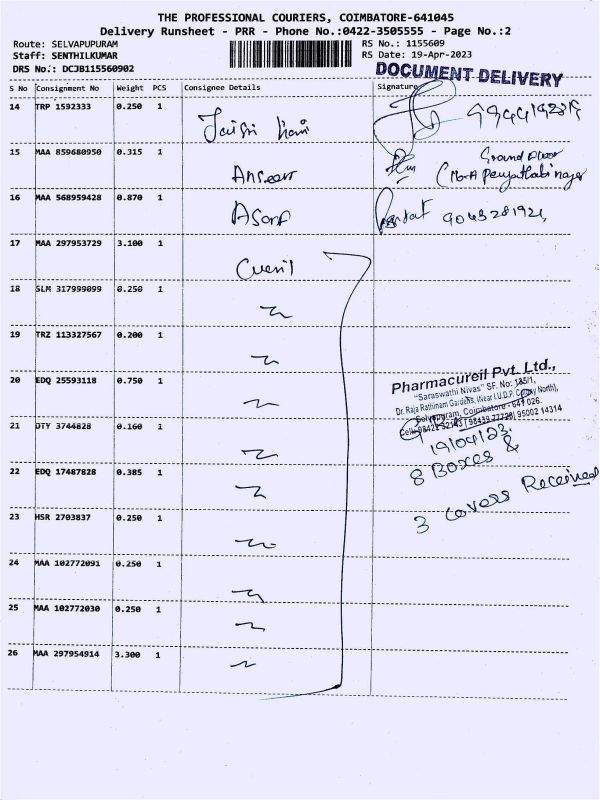 THE PROFESSIONAL COURIERS, COIMBATORE-641045
Delivery Runsheet - PRR - Phone No.:0422-3505555 - Page No.:2
Route: SELVAPUPURAM
RS No.: 1155609
Staff: SENTHILKUMAR
RS Date: 19-Apr-2023
DRS No.: DCJB115560902
DOCUMENT DELIVERY
S No Consignment No Weight PCS Consignee Details Signature
14 TRP 1592333 0.250 1
15 MAA 859680950 0.315 1
Ground Floor
16 MAA 568959428 0.870 1
17 MAA 297953729 3.100 1
18 SLM 317999099 0.250 1
19 TRZ 113327567 0.200 1
20 EDQ 25593118 0.750 1
Pharmacureil Pvt. Ltd.,
"Saraswathi Nivas" SF. No: 185/1,
Dr. Raja Rathinam Gardens, (Near I.U.D.P. Colony North),
Selvapuram, Coimbatore - 641 026.
21 DTY 3744828 0.160 1
19/04/23.
8 Boxes &
22 EDQ 17487828 0.385 1
3 covers Received
23 HSR 2703837 0.250 1
24 MAA 102772091 0.250 1
25 MAA 102772030 0.250 1
26 MAA 297954914 3.300 1